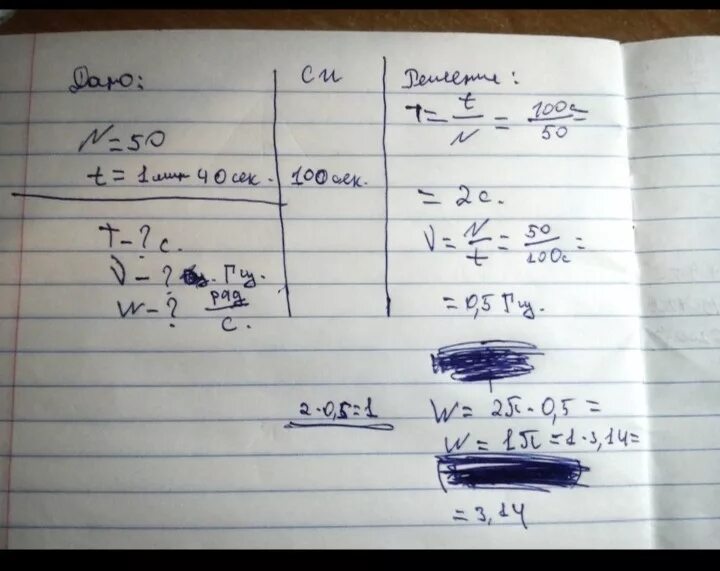 Дано:
N=50
t= 1мин 40сек.
T-? с.
ν-? Гц.
W-? рад/с.
СИ
100сек.
2·0,5=1
Решение:
T= t/N = 100с/50 =
= 2с.
ν= N/t = 50/100с =
=0,5 Гц.
W= 2π·0,5=
W= 1π=1·3,14=
=3,14